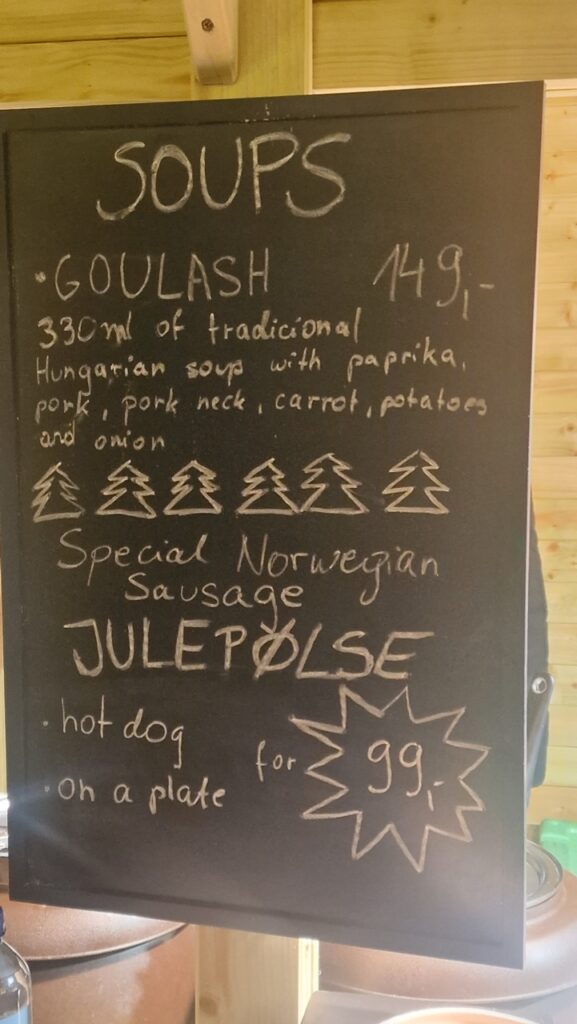 SOUPS
• GOULASH 149,-
330ml of tradicional
Hungarian soup with paprika,
pork, pork neck, carrot, potatoes
and onion
Special Norwegian
Sausage
JULEPØLSE
• hot dog
• on a plate
for 99,-